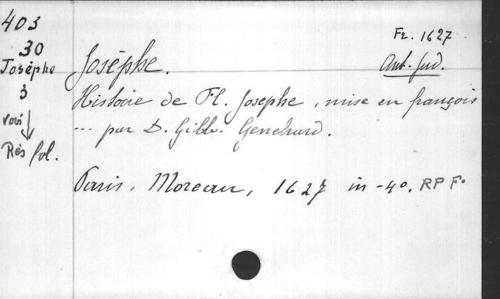 403
30
Josèphe
3
voir
Rés fol.
Fr. 1627
Ant. Jud.
Josèphe.
Histoire de Fl. Josephe, mise en françois
... par D. Gilb. Genebrard.
Paris, Moreau, 1627 in-4o. RP F.